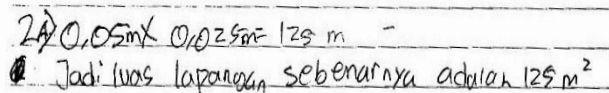 2A) 0,05m X 0,025m= 125 m -
Jadi luas lapangan sebenarnya adalah 125 m²